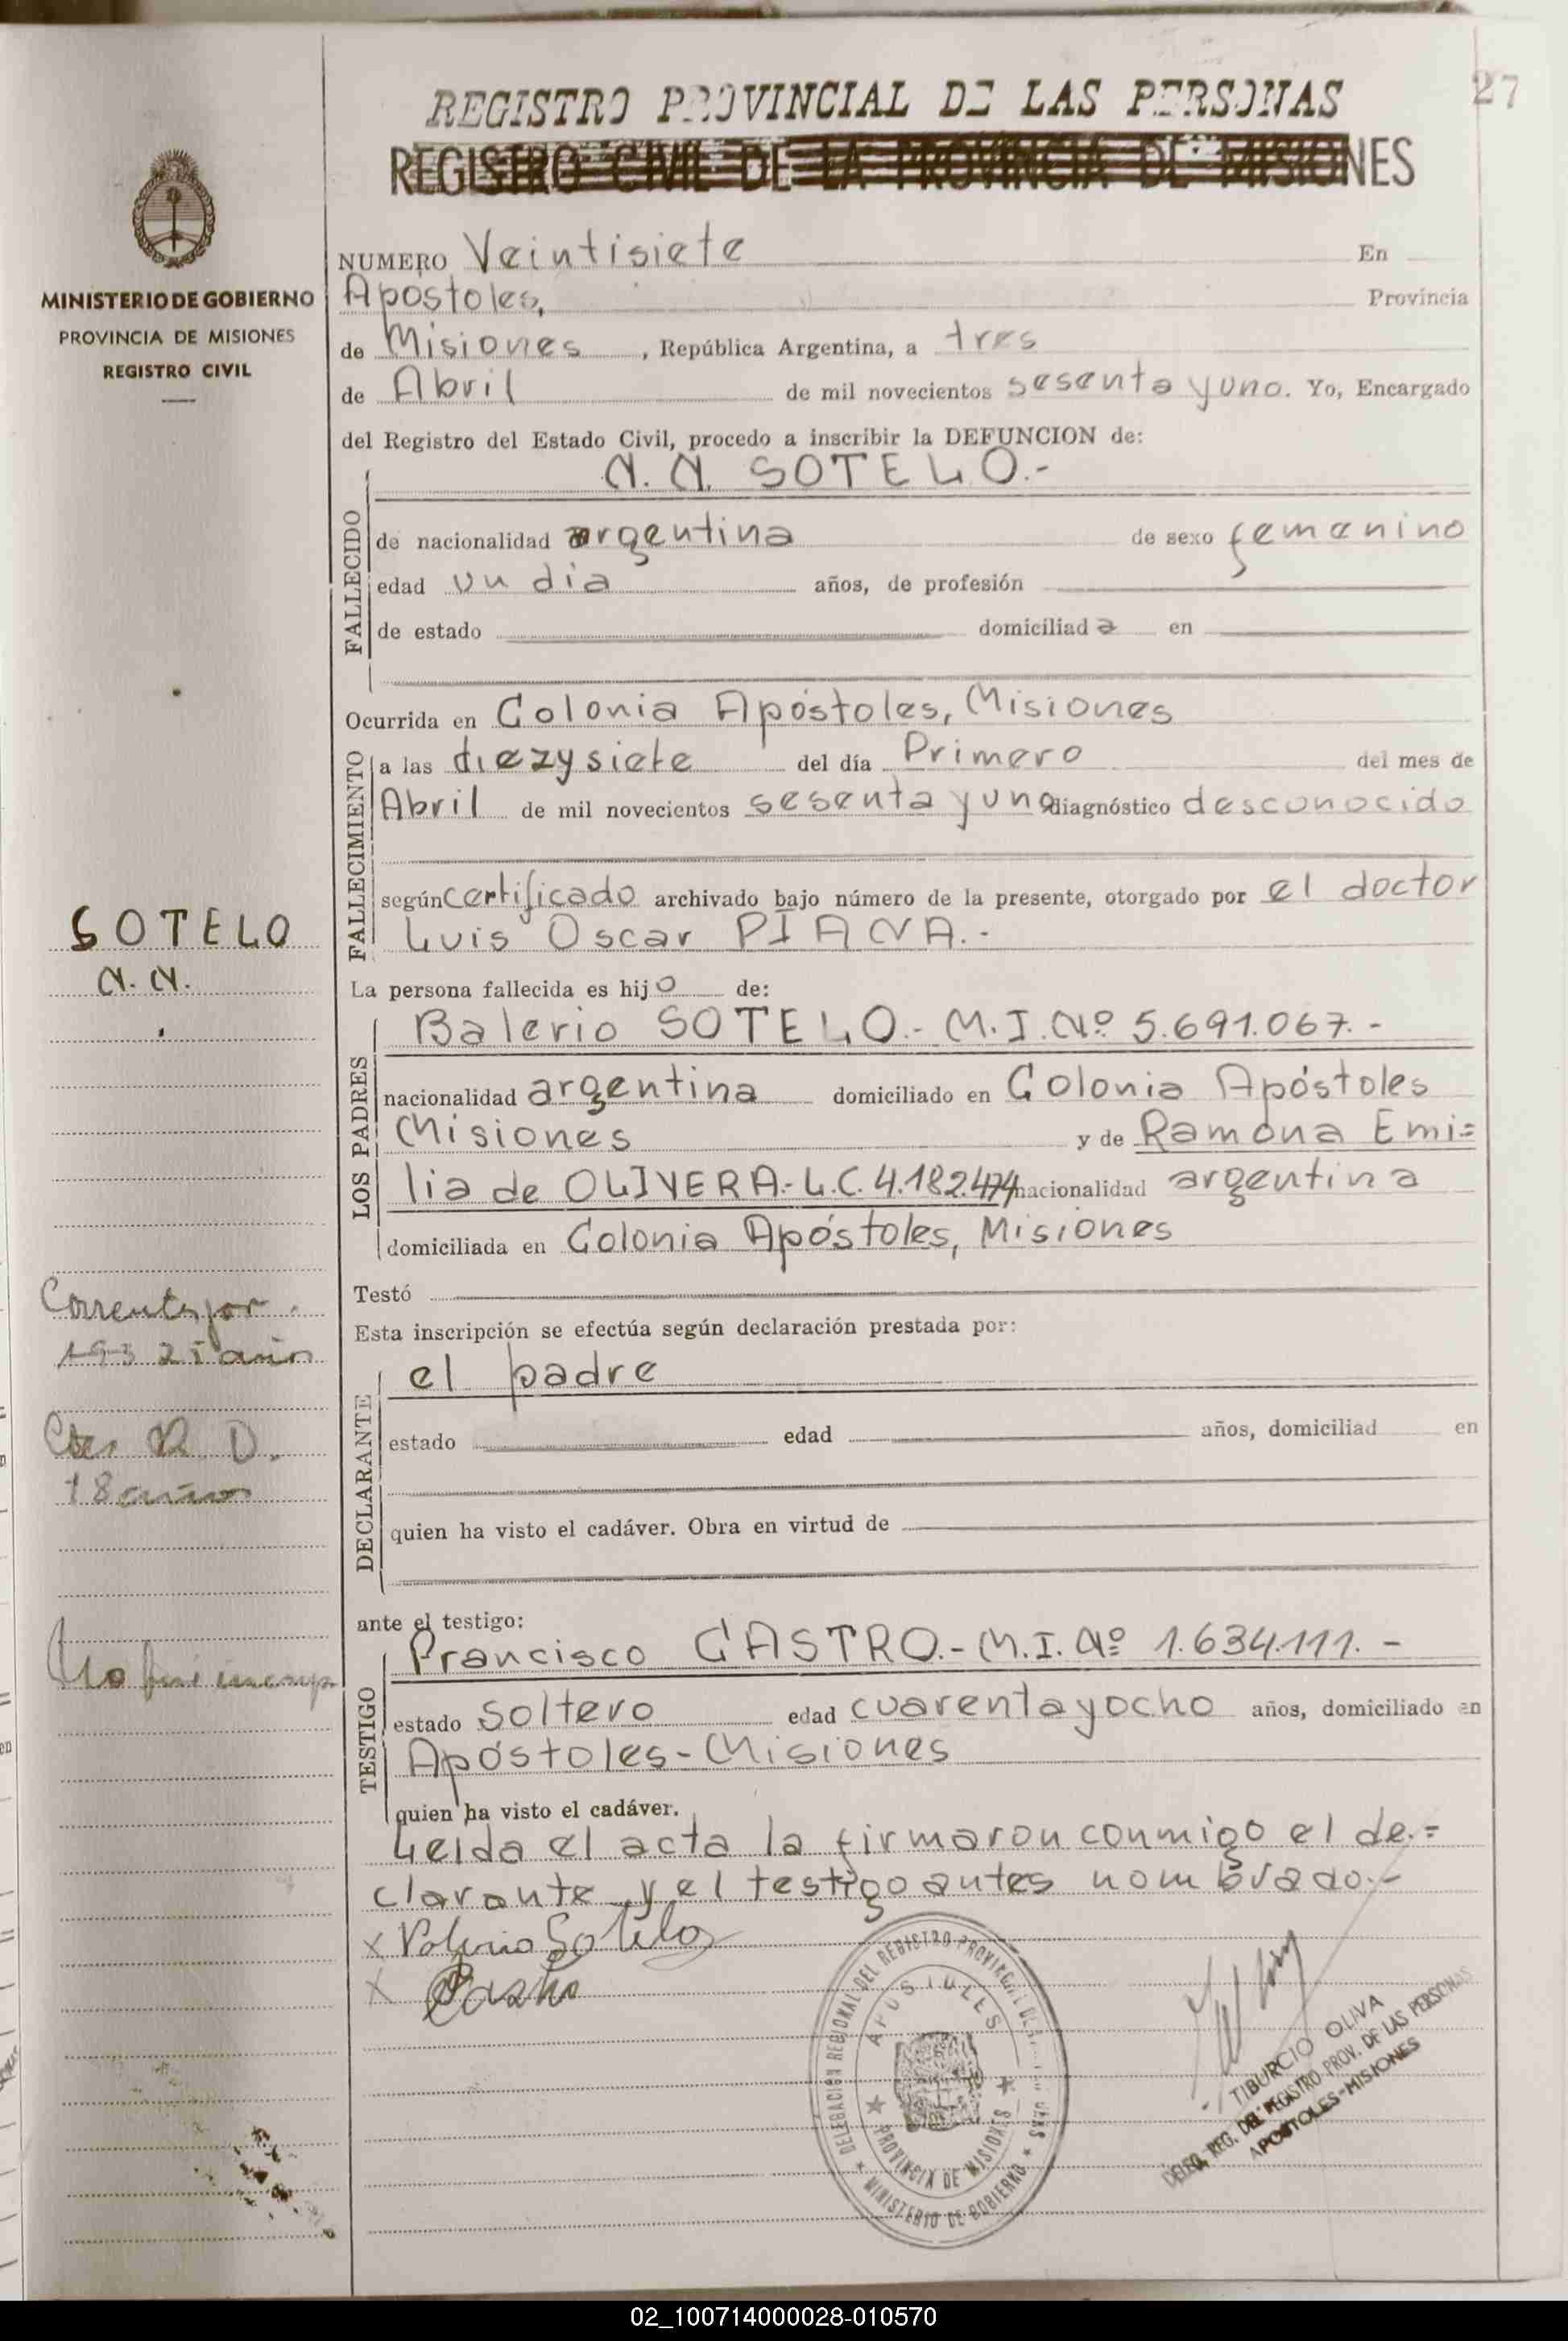 27
REGISTRO PROVINCIAL DE LAS PERSONAS
REGISTRO CIVIL DE LA PROVINCIA DE MISIONES
MINISTERIO DE GOBIERNO
PROVINCIA DE MISIONES
REGISTRO CIVIL
NUMERO Veintisiete En
Apostoles, Provincia
de Misiones, República Argentina, a tres
de Abril de mil novecientos sesenta y uno. Yo, Encargado
del Registro del Estado Civil, procedo a inscribir la DEFUNCION de:
N. N. SOTELO.-
FALLECIDO
de nacionalidad argentina de sexo femenino
edad un dia años, de profesión
de estado domiciliada en
Ocurrida en Colonia Apóstoles, Misiones
FALLECIMIENTO
a las diez y siete del día Primero del mes de
Abril de mil novecientos sesenta y uno diagnóstico desconocido
según certificado archivado bajo número de la presente, otorgado por el doctor
Luis Oscar PIANA.-
SOTELO
N. N.
La persona fallecida es hijo de:
LOS PADRES
Balerio SOTELO.- M.I.Nº 5.691.067.-
nacionalidad argentina domiciliado en Colonia Apóstoles
Misiones y de Ramona Emi=
lia de OLIVERA.- L.C. 4.182.474 nacionalidad argentina
domiciliada en Colonia Apóstoles, Misiones
Testó
Esta inscripción se efectúa según declaración prestada por:
DECLARANTE
el padre
estado edad años, domiciliad en
quien ha visto el cadáver. Obra en virtud de
25 años
18 años
ante el testigo:
TESTIGO
Francisco CASTRO.- M.I.Nº 1.634.111.-
estado soltero edad cuarenta y ocho años, domiciliado en
Apóstoles-Misiones
quien ha visto el cadáver.
Leida el acta la firmaron conmigo el de.=
clarante y el testigo antes nombrado.-
x Valerio Sotelo
x Castro
DELEGACIÓN REGIONAL DEL REGISTRO PROVINCIAL DE LAS PERSONAS
APOSTOLES
PROVINCIA DE MISIONES
MINISTERIO DE GOBIERNO
TIBURCIO OLIVA
DELEG. REG. DEL REGISTRO PROV. DE LAS PERSONAS
APOSTOLES-MISIONES
02_100714000028-010570